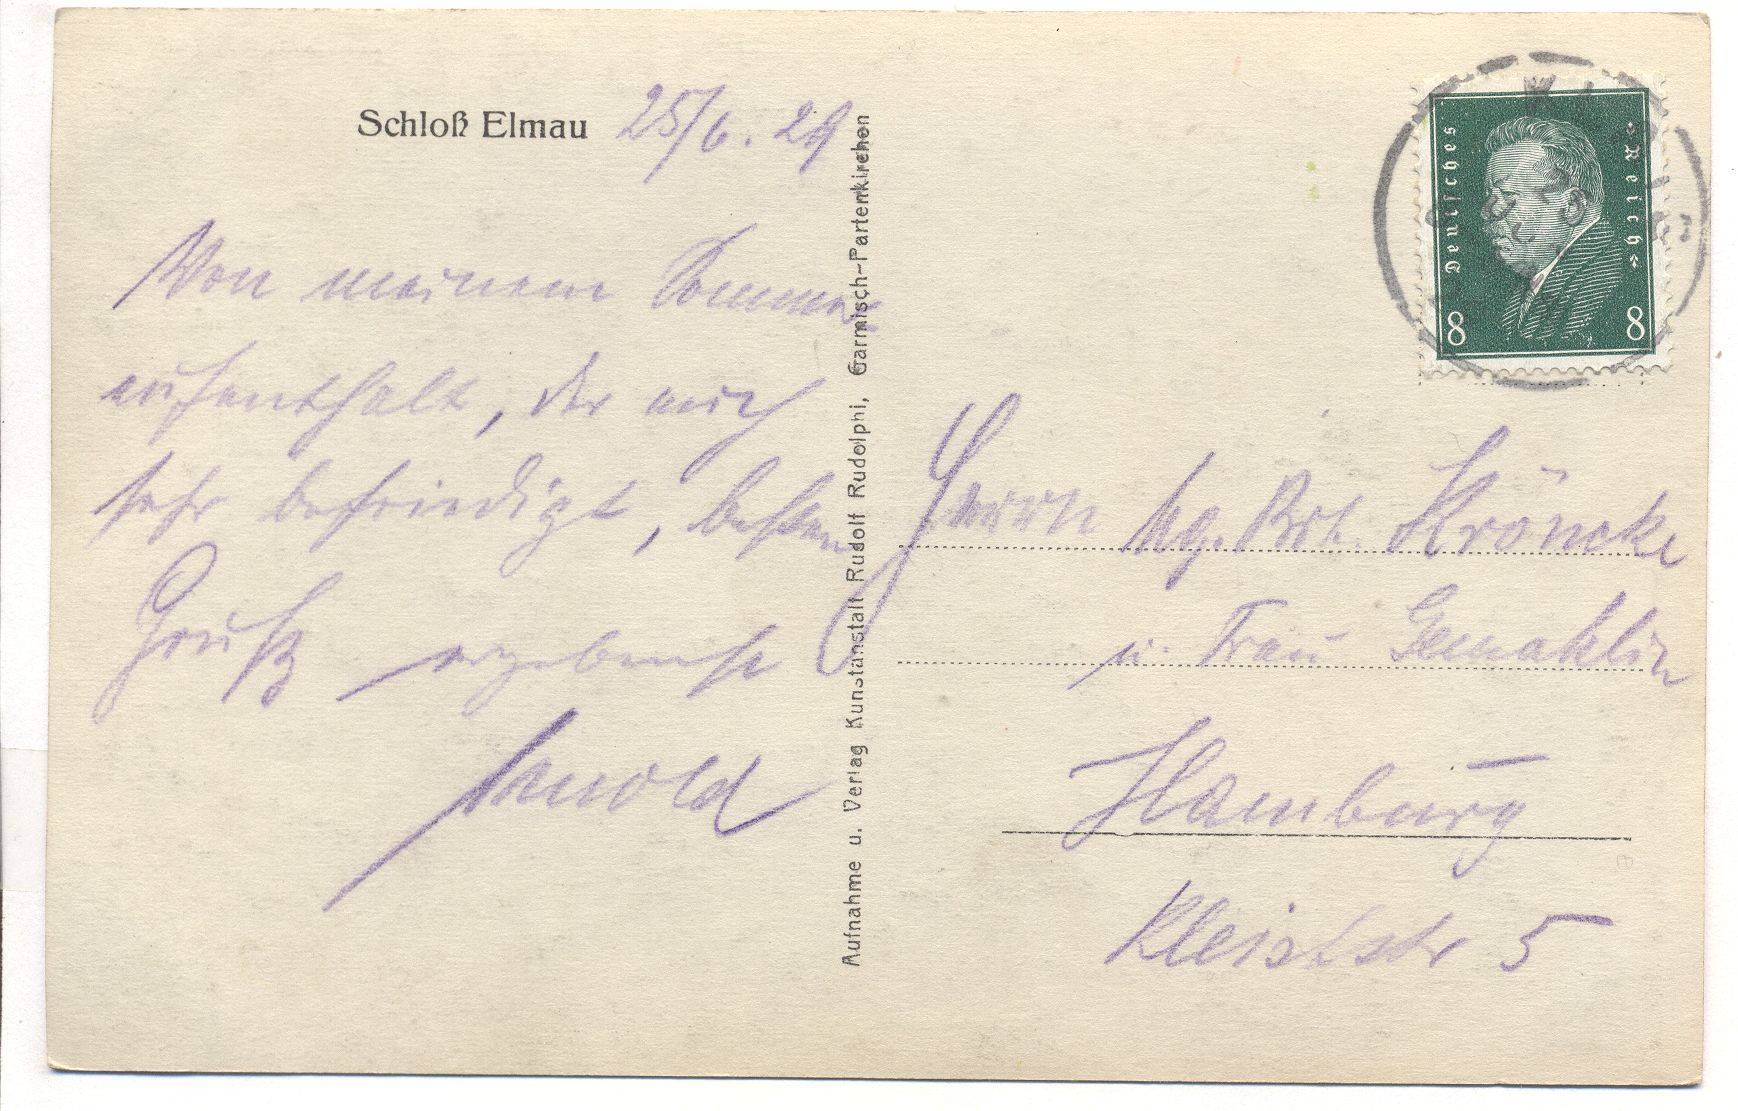 Schloß Elmau 25/6. 29
Von meinem Sommer
aufenthalt, der mich
sehr befriedigt, besten
Gruß ergebenst
Arnold
Aufnahme u. Verlag Kunstanstalt Rudolf Rudolphi, Garmisch-Partenkirchen
Deutsches Reich
8 8
Herrn Mg. Brt. Kröncke
u. Frau Gemahlin
Hamburg
Kleiststr 5